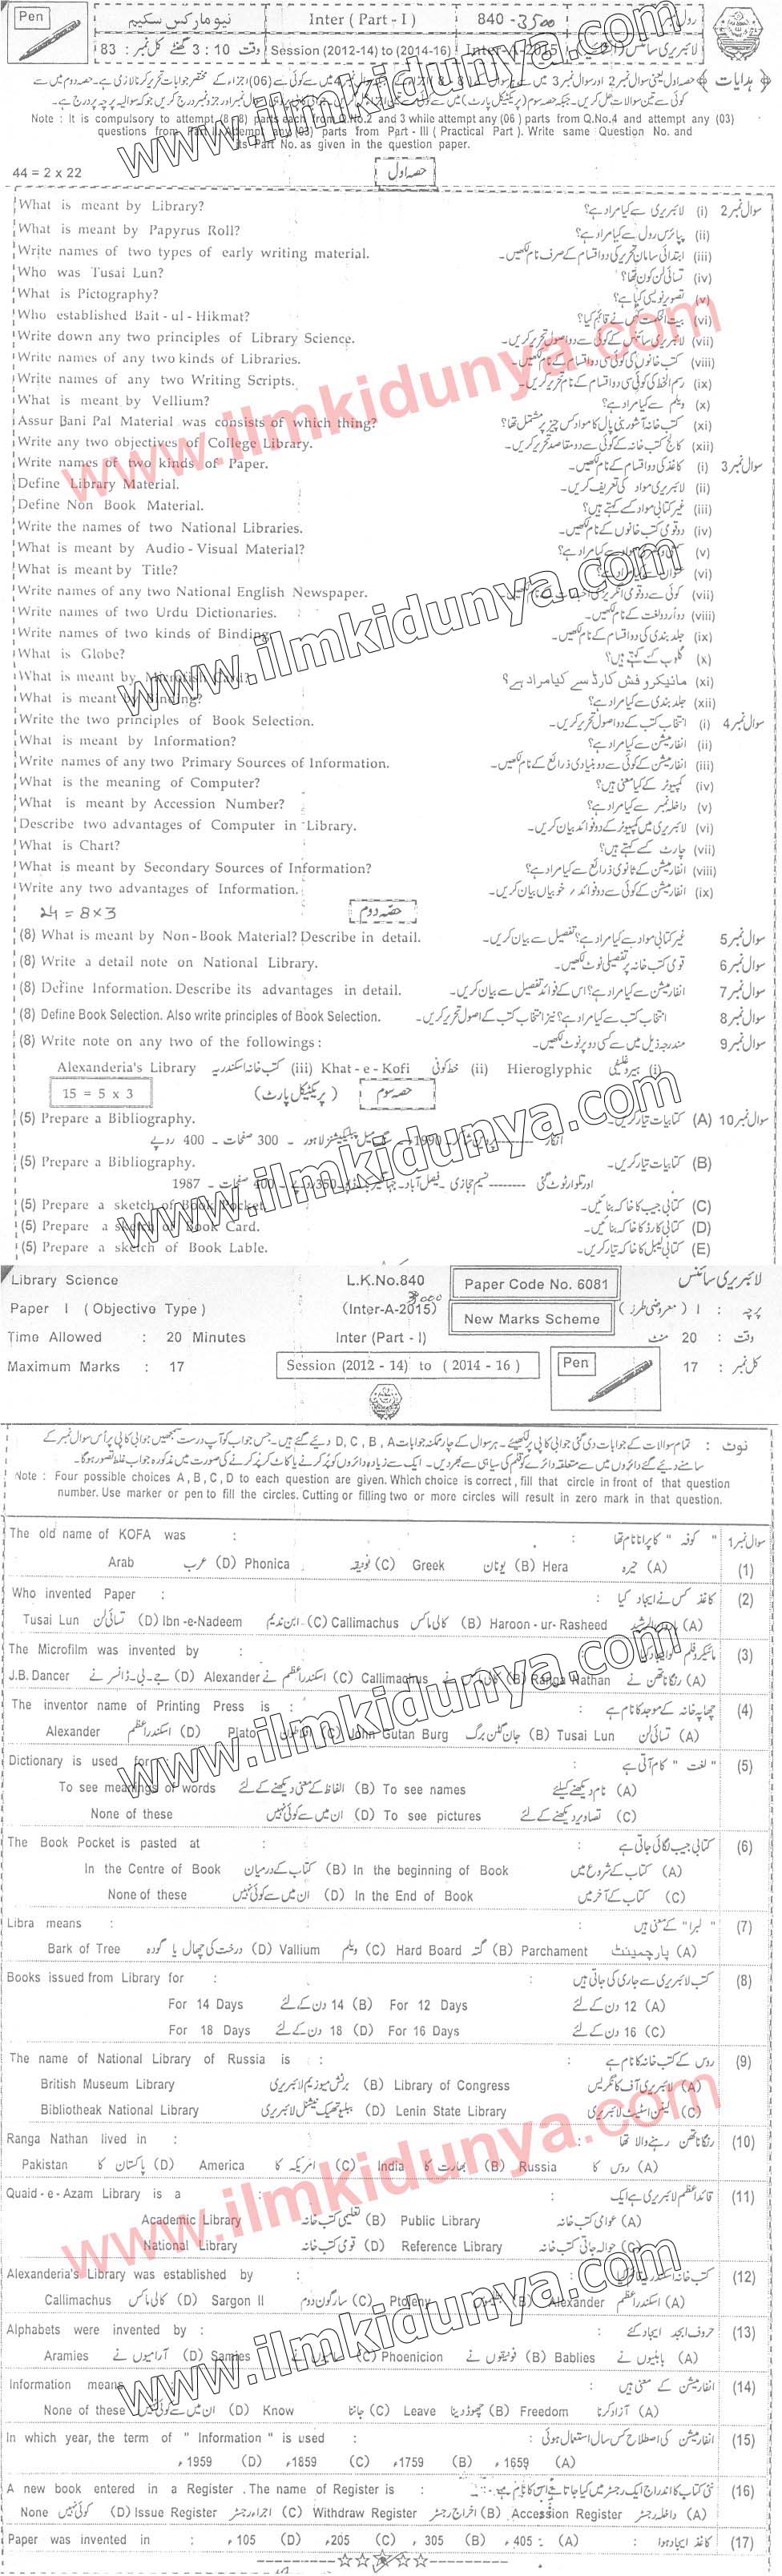 Pen نیو مارکس سکیم Inter ( Part - I ) 840 - 3500 رول نمبر
83 : کل نمبر 3 : 10 وقت گھنٹے Session (2012-14) to (2014-16) Inter-A-2015 لائبریری سائنس
﴿ ہدایات ﴾
Note : It is compulsory to attempt (8 - 8) parts each from Q.No.2 and 3 while attempt any (06 ) parts from Q.No.4 and attempt any (03)
questions from Part II. Attempt any (03) parts from Part - III ( Practical Part ). Write same Question No. and
its Part No. as given in the question paper.
44 = 2 x 22 حصہ اول
What is meant by Library? لائبریری سے کیا مراد ہے؟ (i) سوال نمبر 2
What is meant by Papyrus Roll? پیپائرس رول سے کیا مراد ہے؟ (ii)
Write names of two types of early writing material. ابتدائی سامان تحریر کی دو اقسام کے صرف نام لکھیں۔ (iii)
Who was Tusai Lun? تسائی لن کون تھا؟ (iv)
What is Pictography? تصویر نویسی کیا ہے؟ (v)
Who established Bait - ul - Hikmat? بیت الحکمت کس نے قائم کیا؟ (vi)
Write down any two principles of Library Science. لائبریری سائنس کے کوئی سے دو اصول تحریر کریں۔ (vii)
Write names of any two kinds of Libraries. کتب خانوں کی کوئی سی دو اقسام کے نام لکھیں۔ (viii)
Write names of any two Writing Scripts. رسم الخط کی کوئی سی دو اقسام کے نام تحریر کریں۔ (ix)
What is meant by Vellium? ویلم سے کیا مراد ہے؟ (x)
Assur Bani Pal Material was consists of which thing? کتب خانہ آشور بنی پال کا مواد کس چیز پر مشتمل تھا؟ (xi)
Write any two objectives of College Library. کالج کتب خانہ کے کوئی سے دو مقاصد تحریر کریں۔ (xii)
Write names of two kinds of Paper. کاغذ کی دو اقسام کے نام لکھیں۔ (i) سوال نمبر 3
Define Library Material. لائبریری مواد کی تعریف کریں۔ (ii)
Define Non Book Material. غیر کتابی مواد کسے کہتے ہیں؟ (iii)
Write the names of two National Libraries. دو قومی کتب خانوں کے نام لکھیں۔ (iv)
What is meant by Audio - Visual Material? سمعی و بصری مواد سے کیا مراد ہے؟ (v)
What is meant by Title? عنوان سے کیا مراد ہے؟ (vi)
Write names of any two National English Newspaper. کوئی سے دو قومی انگریزی اخبارات کے نام لکھیں۔ (vii)
Write names of two Urdu Dictionaries. دو اردو لغت کے نام لکھیں۔ (viii)
Write names of two kinds of Binding. جلد بندی کی دو اقسام کے نام لکھیں۔ (ix)
What is Globe? گلوب کسے کہتے ہیں؟ (x)
What is meant by Microfish Card? مائیکرو فش کارڈ سے کیا مراد ہے؟ (xi)
What is meant by Binding? جلد بندی سے کیا مراد ہے؟ (xii)
Write the two principles of Book Selection. انتخاب کتب کے دو اصول تحریر کریں۔ (i) سوال نمبر 4
What is meant by Information? انفارمیشن سے کیا مراد ہے؟ (ii)
Write names of any two Primary Sources of Information. انفارمیشن کے کوئی سے دو بنیادی ذرائع کے نام لکھیں۔ (iii)
What is the meaning of Computer? کمپیوٹر کے کیا معنی ہیں؟ (iv)
What is meant by Accession Number? داخلہ نمبر سے کیا مراد ہے؟ (v)
Describe two advantages of Computer in Library. لائبریری میں کمپیوٹر کے دو فوائد بیان کریں۔ (vi)
What is Chart? چارٹ کسے کہتے ہیں؟ (vii)
What is meant by Secondary Sources of Information? انفارمیشن کے ثانوی ذرائع سے کیا مراد ہے؟ (viii)
Write any two advantages of Information. انفارمیشن کے کوئی سے دو فوائد / خوبیاں بیان کریں۔ (ix)
24 = 8 x 3 حصہ دوم
(8) What is meant by Non-Book Material? Describe in detail. غیر کتابی مواد سے کیا مراد ہے؟ تفصیل سے بیان کریں۔ سوال نمبر 5
(8) Write a detail note on National Library. قومی کتب خانہ پر تفصیلی نوٹ لکھیں۔ سوال نمبر 6
(8) Define Information. Describe its advantages in detail. انفارمیشن سے کیا مراد ہے؟ اس کے فوائد تفصیل سے بیان کریں۔ سوال نمبر 7
(8) Define Book Selection. Also write principles of Book Selection. انتخاب کتب سے کیا مراد ہے؟ نیز انتخاب کتب کے اصول تحریر کریں۔ سوال نمبر 8
(8) Write note on any two of the followings : مندرجہ ذیل میں سے کسی دو پر نوٹ لکھیں۔ سوال نمبر 9
Alexanderia's Library کتب خانہ اسکندریہ (iii) Khat - e - Kofi خط کوفی (ii) Hieroglyphic ہیروغلیفی (i)
15 = 5 x 3 ( پریکٹیکل پارٹ ) حصہ سوم
(5) Prepare a Bibliography. کتابیات تیار کریں۔ (A) سوال نمبر 10
1990 - سنگ میل پبلیکیشنز لاہور - 300 صفحات - 400 روپے
(5) Prepare a Bibliography. کتابیات تیار کریں۔ (B)
اور تلوار ٹوٹ گئی -------- نسیم حجازی - فیصل آباد - جہانگیر بک ڈپو - 350 روپے - 400 صفحات - 1987
(5) Prepare a sketch of Book Pocket. کتابی جیب کا خاکہ بنائیں۔ (C)
(5) Prepare a sketch of Book Card. کتابی کارڈ کا خاکہ بنائیں۔ (D)
(5) Prepare a sketch of Book Lable. کتابی لیبل کا خاکہ تیار کریں۔ (E)
Library Science L.K.No.840 3000 Paper Code No. 6081 لائبریری سائنس
Paper I ( Objective Type ) (Inter-A-2015) New Marks Scheme پرچہ : I ( معروضی طرز )
Time Allowed : 20 Minutes Inter (Part - I) وقت : 20 منٹ
Maximum Marks : 17 Session (2012 - 14) to ( 2014 - 16 ) Pen کل نمبر : 17
نوٹ : تمام سوالات کے جوابات دی گئی جوابی کاپی پر لکھیئے۔ ہر سوال کے چار ممکنہ جوابات D, C, B, A دیئے گئے ہیں۔ جس جواب کو آپ درست سمجھیں جوابی کاپی پر اُس سوال نمبر کے
سامنے دیئے گئے دائروں میں سے متعلقہ دائرے کو قلم کی سیاہی سے بھر دیں۔ ایک سے زیادہ دائروں کو پُر کرنے یا کاٹ کر پُر کرنے کی صورت میں مذکورہ جواب غلط تصور ہوگا۔
Note : Four possible choices A , B , C , D to each question are given. Which choice is correct , fill that circle in front of that question
number. Use marker or pen to fill the circles. Cutting or filling two or more circles will result in zero mark in that question.
The old name of KOFA was : " کوفہ " کا پرانا نام تھا : سوال نمبر 1 (1)
Arab عرب (D) Phonica فونیقہ (C) Greek یونان (B) Hera حیرہ (A)
Who invented Paper : کاغذ کس نے ایجاد کیا : (2)
Tusai Lun تسائی لن (D) Ibn -e-Nadeem ابن ندیم (C) Callimachus کالی ماکس (B) Haroon -ur- Rasheed ہارون الرشید (A)
The Microfilm was invented by : مائیکرو فلم ایجاد کی : (3)
J.B. Dancer جے - بی - ڈانسر نے (D) Alexander اسکندر اعظم نے (C) Callimachus کالی ماکس نے (B) Ranga Nathan رنگا ناتھن نے (A)
The inventor name of Printing Press is : چھاپہ خانہ کے موجد کا نام ہے : (4)
Alexander اسکندر اعظم (D) Plato افلاطون (C) John Gutan Burg جان گٹن برگ (B) Tusai Lun تسائی لن (A)
Dictionary is used for : " لغت " کام آتی ہے : (5)
To see meanings of words الفاظ کے معنی دیکھنے کے لئے (B) To see names نام دیکھنے کیلئے (A)
None of these ان میں سے کوئی نہیں (D) To see pictures تصاویر دیکھنے کے لئے (C)
The Book Pocket is pasted at : کتابی جیب لگائی جاتی ہے : (6)
In the Centre of Book کتاب کے درمیان (B) In the beginning of Book کتاب کے شروع میں (A)
None of these ان میں سے کوئی نہیں (D) In the End of Book کتاب کے آخر میں (C)
Libra means : " لبرا " کے معنی ہیں : (7)
Bark of Tree درخت کی چھال یا گودہ (D) Vallium ویلم (C) Hard Board گتہ (B) Parchament پارچمینٹ (A)
Books issued from Library for : کتب لائبریری سے جاری کی جاتی ہیں : (8)
For 14 Days 14 دن کے لئے (B) For 12 Days 12 دن کے لئے (A)
For 18 Days 18 دن کے لئے (D) For 16 Days 16 دن کے لئے (C)
The name of National Library of Russia is : روس کے کتب خانہ کا نام ہے : (9)
British Museum Library برٹش میوزیم لائبریری (B) Library of Congress لائبریری آف کانگریس (A)
Bibliotheak National Library ببلیوتھیک نیشنل لائبریری (D) Lenin State Library لینن اسٹیٹ لائبریری (C)
Ranga Nathan lived in : رنگا ناتھن رہنے والا تھا : (10)
Pakistan پاکستان کا (D) America امریکہ کا (C) India بھارت کا (B) Russia روس کا (A)
Quaid - e - Azam Library is a : قائد اعظم لائبریری ہے ایک : (11)
Academic Library تعلیمی کتب خانہ (B) Public Library عوامی کتب خانہ (A)
National Library قومی کتب خانہ (D) Reference Library حوالہ جاتی کتب خانہ (C)
Alexanderia's Library was established by : کتب خانہ اسکندریہ قائم کیا : (12)
Callimachus کالی ماکس (D) Sargon II سارگون دوم (C) Ptolemy (B) Alexander اسکندر اعظم (A)
Alphabets were invented by : حروف ابجد ایجاد کئے : (13)
Aramies آرامیوں نے (D) Samies سامیوں نے (C) Phoenicion فونیقیوں نے (B) Bablies بابلیوں نے (A)
Information means : انفارمیشن کے معنی ہیں : (14)
None of these ان میں سے کوئی نہیں (D) Know جاننا (C) Leave چھوڑ دینا (B) Freedom آزاد کرنا (A)
In which year, the term of " Information " is used : انفارمیشن کی اصطلاح کس سال استعمال ہوئی : (15)
1959ء (D) 1859ء (C) 1759ء (B) 1659ء (A)
A new book entered in a Register . The name of Register is : نئی کتاب کا اندراج ایک رجسٹر میں کیا جاتا ہے اس کا نام ہے : (16)
None کوئی نہیں (D) Issue Register اجراء رجسٹر (C) Withdraw Register اخراج رجسٹر (B) Accession Register داخلہ رجسٹر (A)
Paper was invented in : 105ء (D) 205ء (C) 305ء (B) 405ء (A) : کاغذ ایجاد ہوا (17)
www.ilmkidunya.com
www.ilmkidunya.com
www.ilmkidunya.com
www.ilmkidunya.com
www.ilmkidunya.com
www.ilmkidunya.com
www.ilmkidunya.com